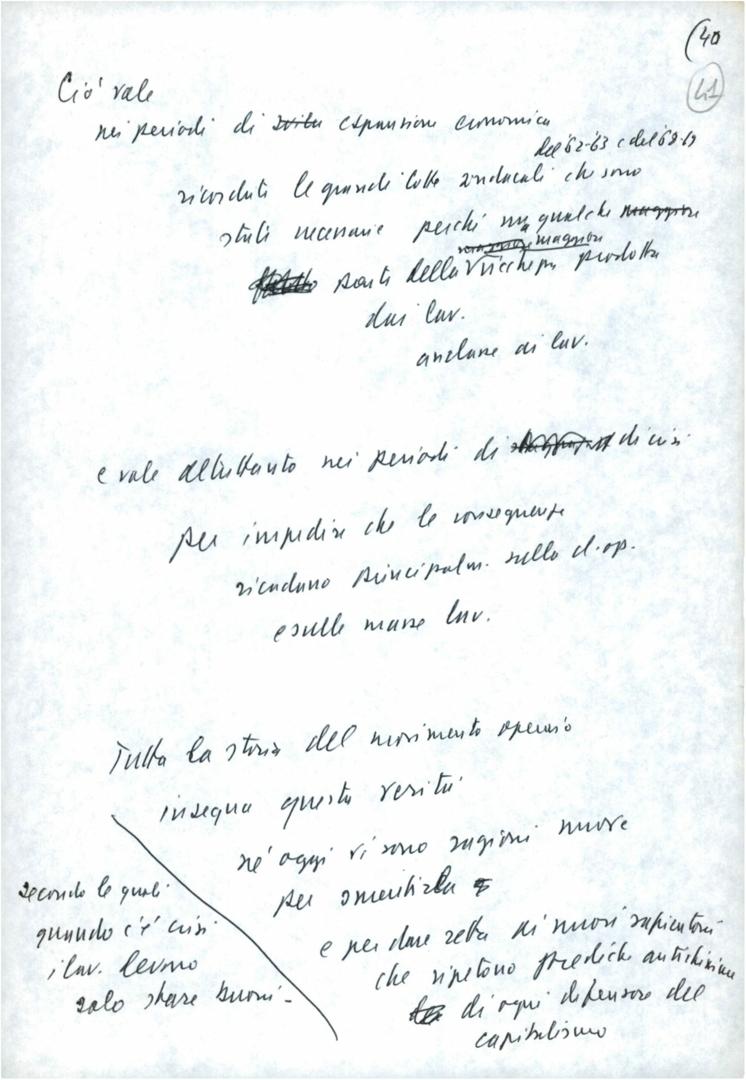 (40
41
Ciò vale
nei periodi di svilu espansione economica
del '62-63 e del '68-69
ricordate le grandi lotte sindacali che sono
state necessarie perché una qualche maggiore
maggiore
parte della ricchezza prodotta
dai lav.
andasse ai lav.
e vale altrettanto nei periodi di di crisi
per impedire che le conseguenze
ricadano principalm. sulla cl. op.
e sulle masse lav.
Tutta la storia del movimento operaio
insegna questa verità
né oggi vi sono ragioni nuove
per smentirla
e per dare retta ai nuovi sapientoni
che ripetono prediche antichissime
di ogni difensore del
capitalismo
secondo le quali
quando c'è crisi
i lav. devono
solo stare buoni -